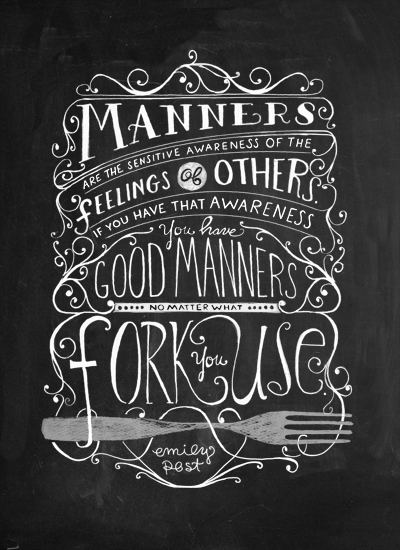 MANNERS
ARE THE SENSITIVE AWARENESS OF THE
FEELINGS of OTHERS.
IF YOU HAVE THAT AWARENESS
You have
GOOD MANNERS
NO MATTER WHAT
FORK you USE.
emily
post